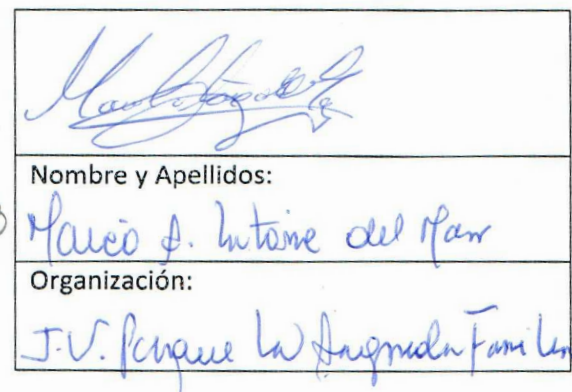 Nombre y Apellidos:
Marco A. del Mar
Organización:
J.V. Parque La Sagrada Familia